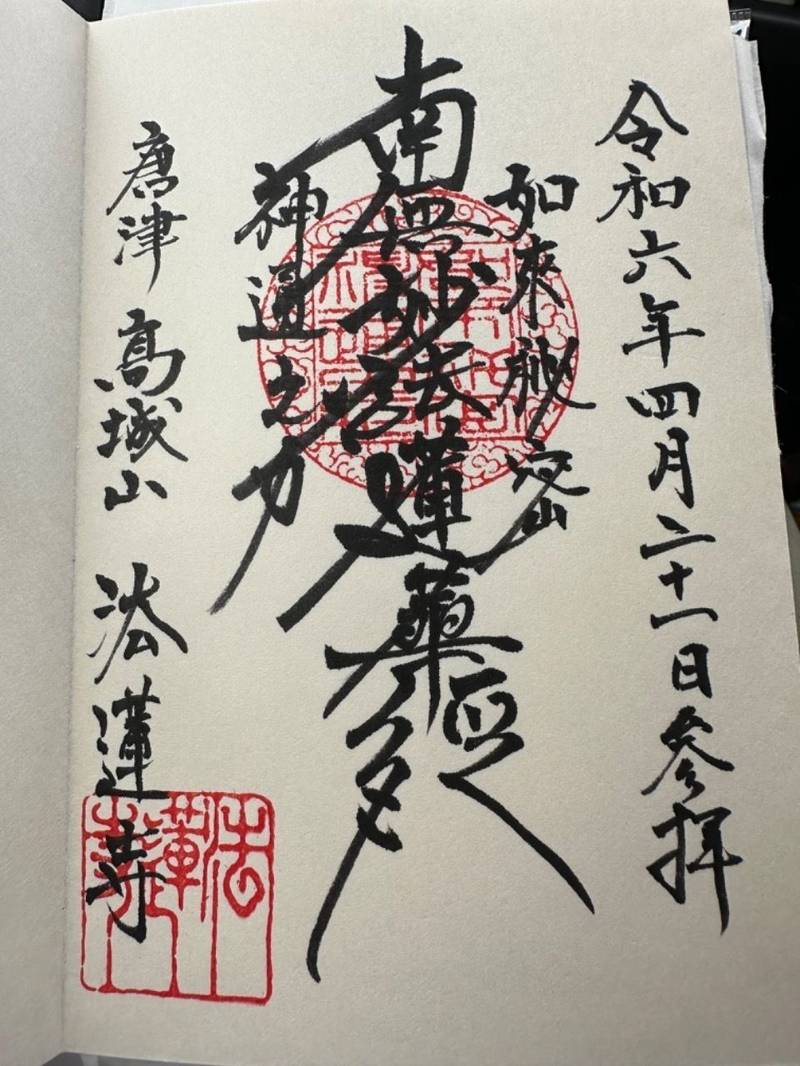 令和六年四月二十一日参拝
如來秘密
南無妙法蓮華経
神通之力
唐津 高城山 法蓮寺
法蓮寺